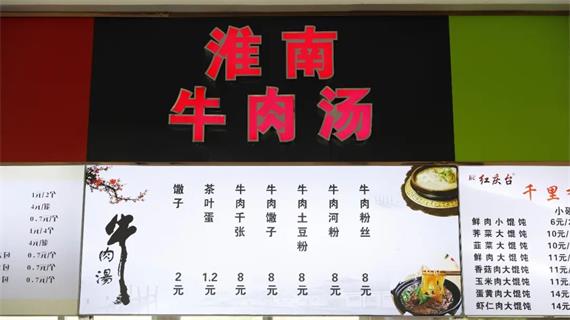 淮南
牛肉汤
1元/2个
4元/筛
0.7元/个
1元/4个
4元/筛
包 0.7元/个
包 0.7元/个
0.7元/个
牛肉湯
馓子 2元
茶叶蛋 1.2元
牛肉千张 8元
牛肉馓子 8元
牛肉土豆粉 8元
牛肉河粉 8元
牛肉粉丝 8元
红庆台
千里
小碗
鲜肉小馄饨 6元/
荠菜大馄饨 10元/
韭菜大馄饨 10元/
鲜肉大馄饨 11元/
香菇肉大馄饨 11元/
玉米肉大馄饨 11元/
蛋黄肉大馄饨 14元
虾仁肉大馄饨 14元